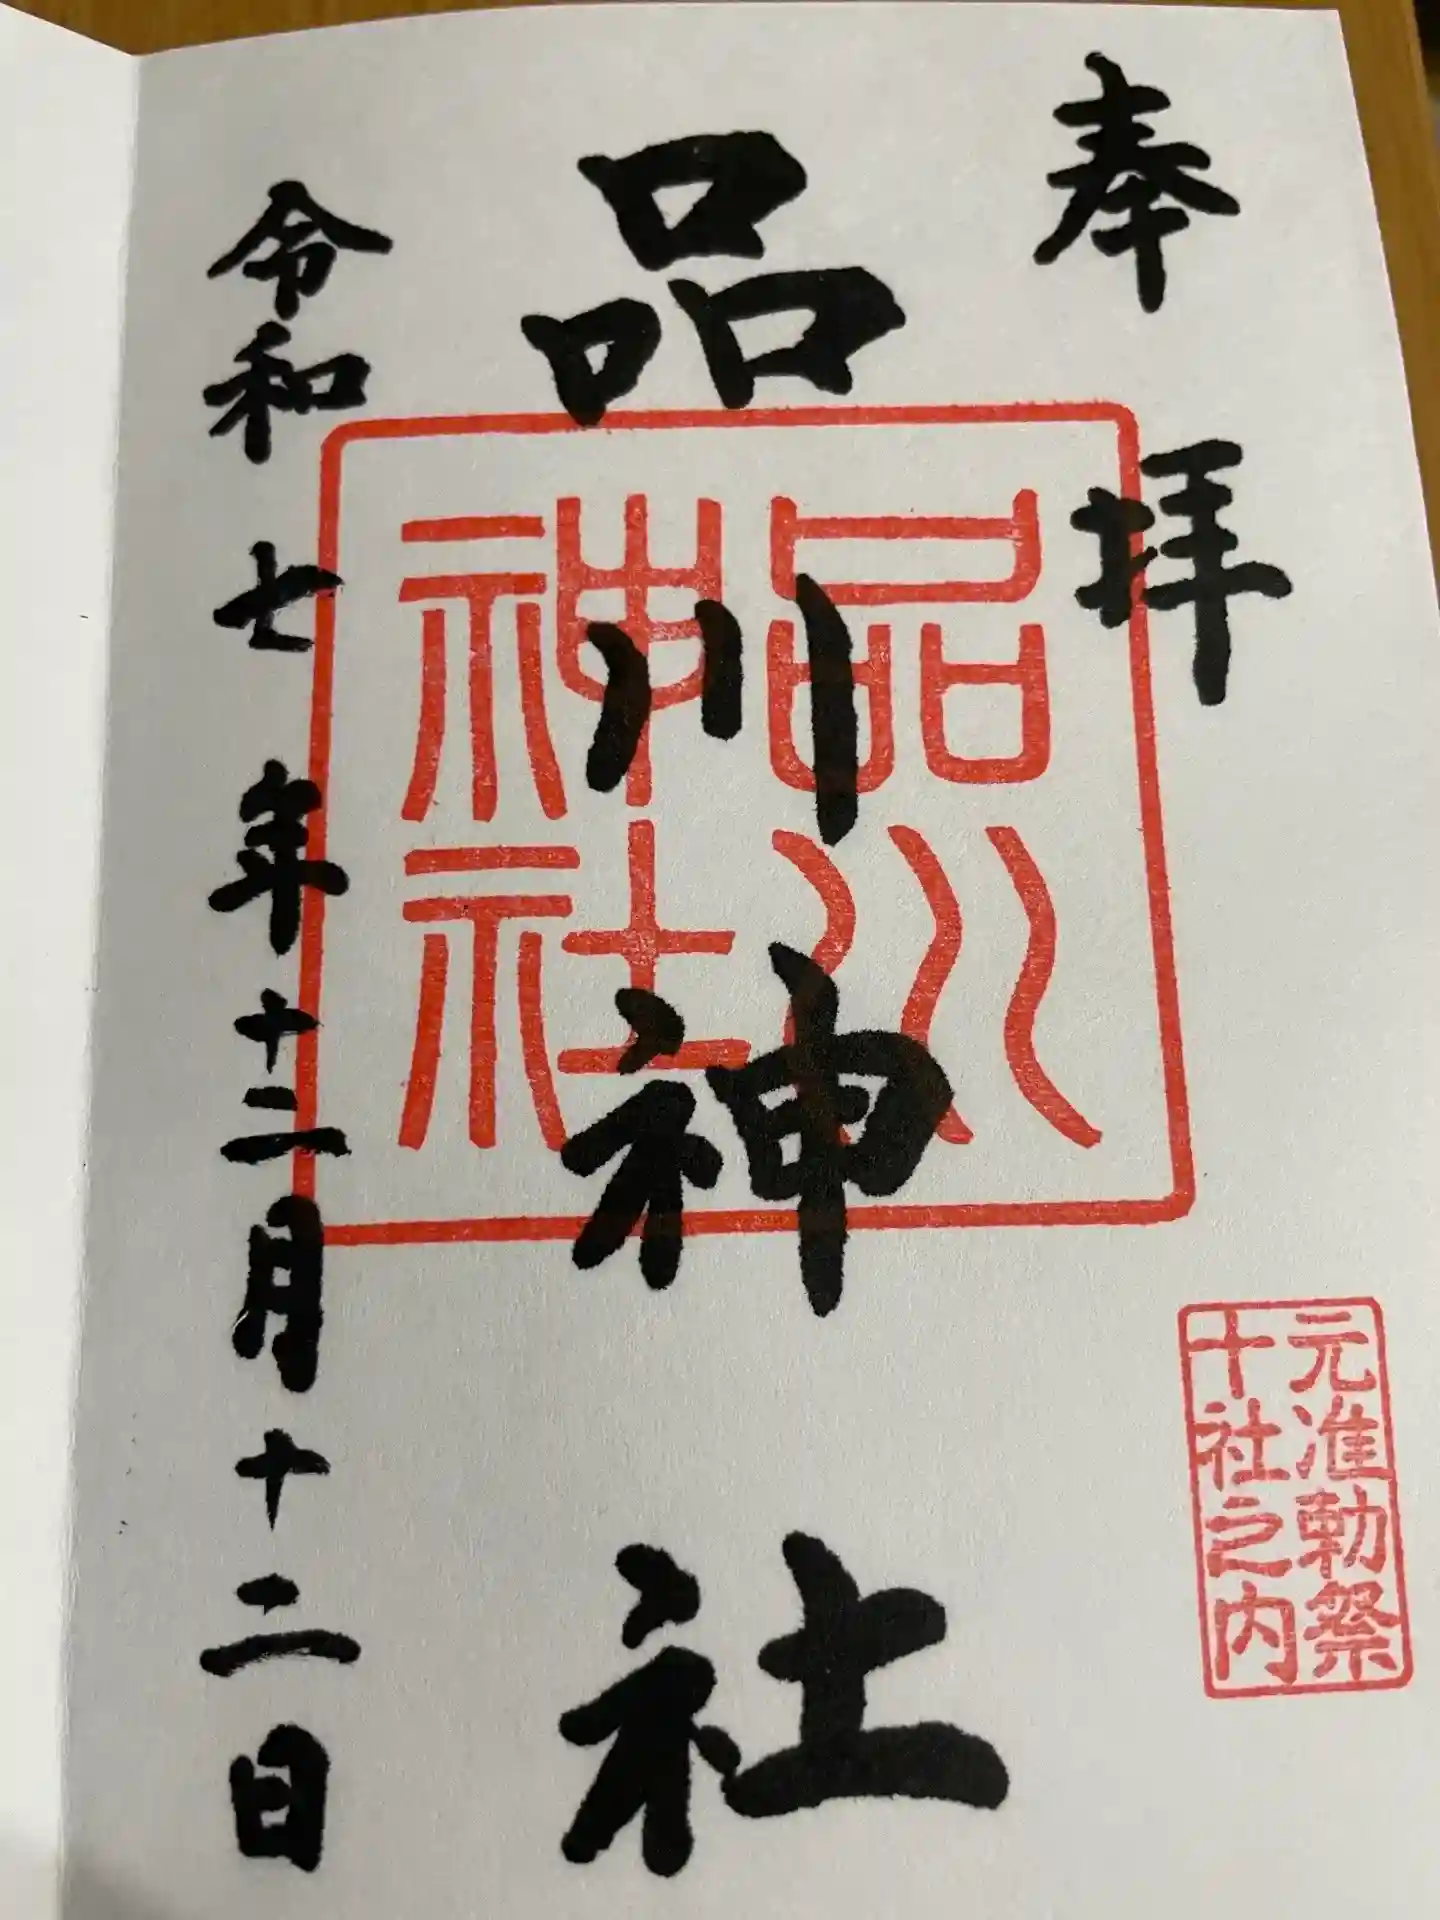 奉拝
元准勅祭
十社之内
品川神社
品川
神社
令和七年十二月十二日